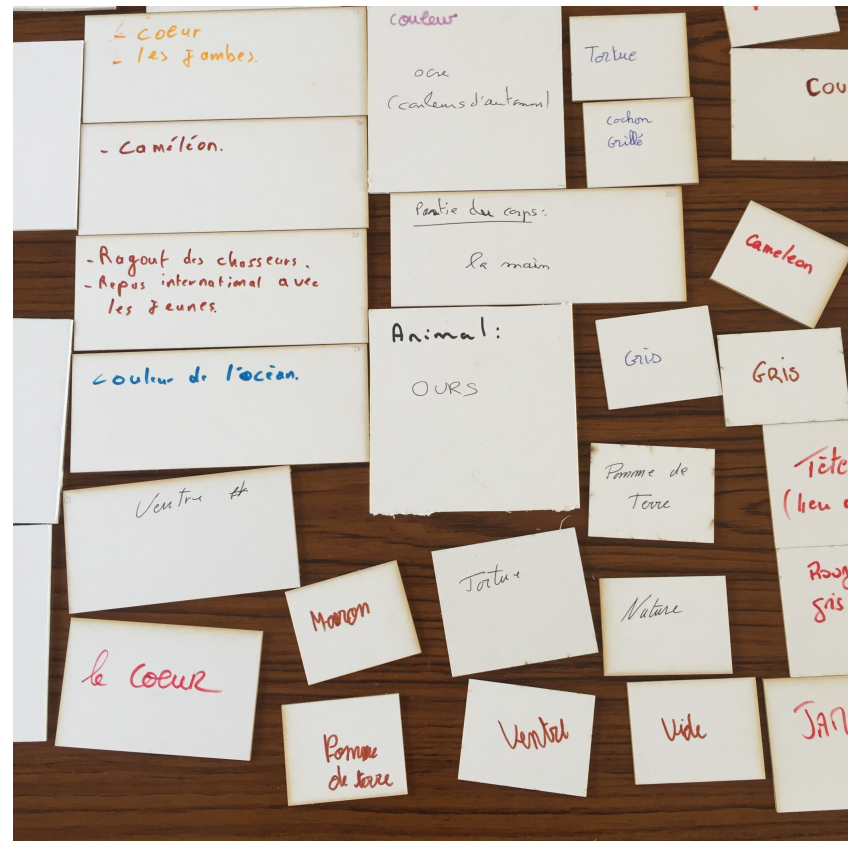 - coeur
- les jambes.
- Caméléon.
- Ragout des chasseurs.
- Repas international avec
les jeunes.
couleur de l'océan.
Ventre
le COEUR
couleur
ocre
(couleurs d'automne)
Partie du corps:
la main
Animal:
OURS
Tortue
cochon
Grillé
COU
cameleon
Gris
GRIS
Pomme de
Terre
Tête
(lieu
Tortue
Nature
Roug
gris
Maron
Pomme
de terre
Ventre
Vide
JAM